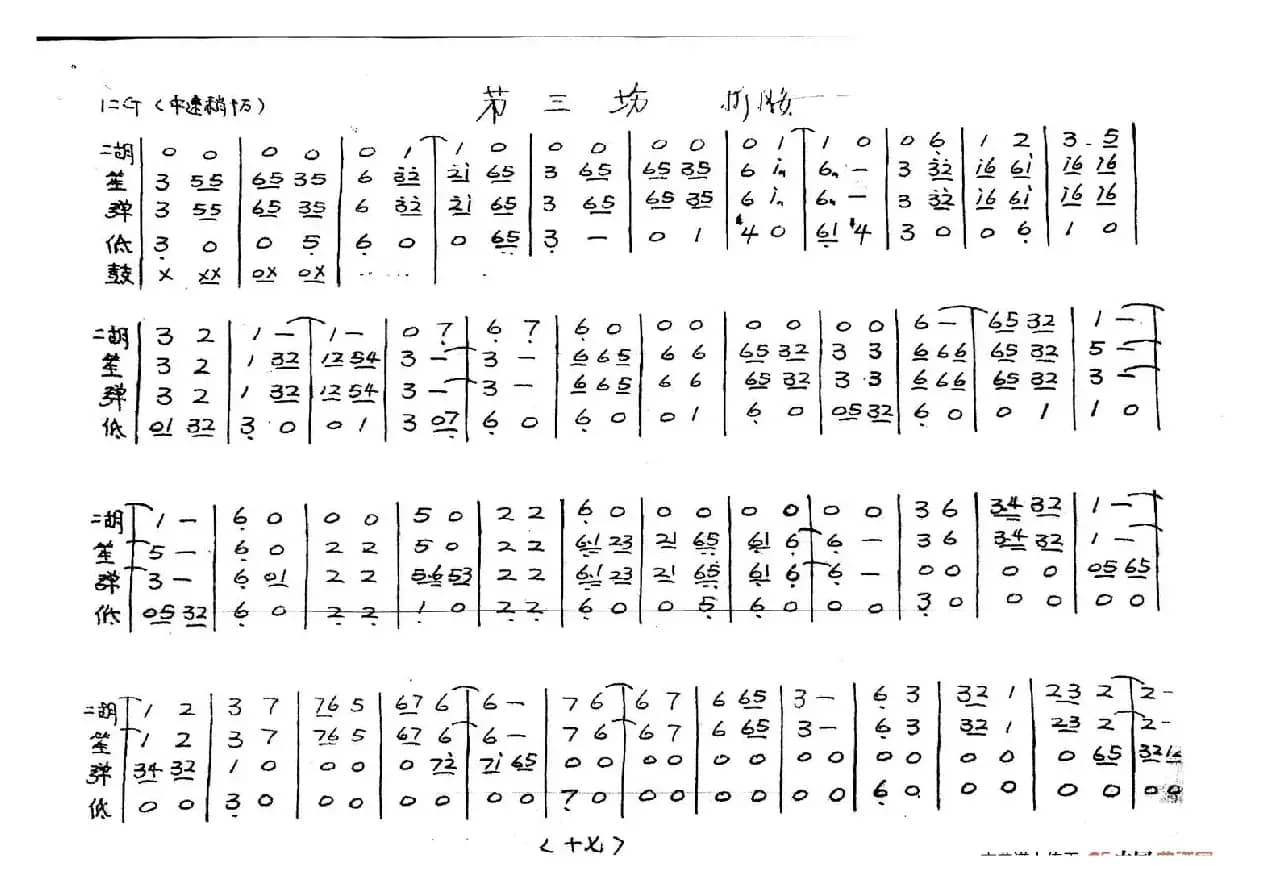 1=G（中速稍万） 第三场
二胡 | 0 0 | 0 0 | 0 1 | 1 0 | 0 0 | 0 0 | 0 1 | 1 0 | 0 6 | 1 2 | 3 . 5
笙 | 3 55 | 65 35 | 6 32 | 21 65 | 3 65 | 65 35 | 6 i | 6 – | 3 32 | i6 6i | i6 i6
弹 | 3 55 | 65 35 | 6 32 | 21 65 | 3 65 | 65 35 | 6 i | 6 – | 3 32 | i6 6i | i6 i6
低 | 3 0 | 0 5 | 6 0 | 0 65 | 3 – | 0 1 | #4 0 | 61 #4 | 3 0 | 0 6 | 1 0
鼓 | X XX | 0X 0X | …… .
二胡 | 3 2 | 1 – | 1 – | 0 7 | 6 7 | 6 0 | 0 0 | 0 0 | 0 0 | 6 – | 65 32 | 1 –
笙 | 3 2 | 1 32 | 12 54 | 3 – | 3 – | 6 6 5 | 6 6 | 65 32 | 3 3 | 6 66 | 65 32 | 5 –
弹 | 3 2 | 1 32 | 12 54 | 3 – | 3 – | 6 6 5 | 6 6 | 65 32 | 3 3 | 6 66 | 65 32 | 3 –
低 | 01 32 | 3 0 | 0 1 | 3 07 | 6 0 | 6 0 | 0 1 | 6 0 | 05 32 | 6 0 | 0 1 | 1 0
二胡 | 1 – | 6 0 | 0 0 | 5 0 | 2 2 | 6 0 | 0 0 | 0 0 | 0 0 | 3 6 | 34 32 | 1 –
笙 | 5 – | 6 0 | 2 2 | 5 0 | 2 2 | 61 23 | 21 65 | 61 6 | 6 – | 3 6 | 34 32 | 1 –
弹 | 3 – | 6 01 | 2 2 | 56 53 | 2 2 | 61 23 | 21 65 | 61 6 | 6 – | 0 0 | 0 0 | 05 65
低 | 05 32 | 6 0 | 2 2 | 1 0 | 2 2 | 6 0 | 0 5 | 6 0 | 0 0 | 3 0 | 0 0 | 0 0
二胡 | 1 2 | 3 7 | 76 5 | 67 6 | 6 – | 7 6 | 6 7 | 6 65 | 3 – | 6 3 | 32 1 | 23 2 | 2 –
笙 | 1 2 | 3 7 | 76 5 | 67 6 | 6 – | 7 6 | 6 7 | 6 65 | 3 – | 6 3 | 32 1 | 23 2 | 2 –
弹 | 34 32 | 1 0 | 0 0 | 0 72 | 7i 65 | 0 0 | 0 0 | 0 0 | 0 0 | 0 0 | 0 0 | 0 65 | 32 12
低 | 0 0 | 3 0 | 0 0 | 0 0 | 0 0 | 7 0 | 0 0 | 0 0 | 0 0 | 6 0 | 0 0 | 0 0 | 0 0
（十七）